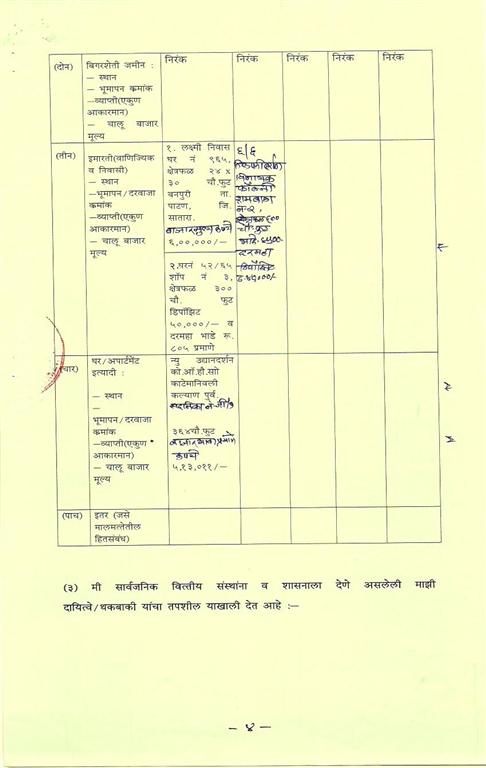 (दोन)
बिगरशेती जमीन :
— स्थान
— भूमापन कमांक
—व्याप्ती(एकुण
आकारमान)
— चालू बाजार
मूल्य
निरंक
निरंक
निरंक
निरंक
निरंक
(तीन)
इमारती(वाणिज्यिक
व निवासी)
— स्थान
—भूमापन/दरवाजा
कमांक
—व्याप्ती(एकुण
आकारमान)
— चालू बाजार
मूल्य
१. लक्ष्मी निवास
घर नं ९६५,
क्षेत्रफळ २४ x
३० चौ.फुट
बनपुरी ता.
पाटण, जि.
सातारा.
६,००,०००/—
२.घरनं ५२/६५
शॉप नं ३,
क्षेत्रफळ ३००
चौ. फुट
डिपॉझिट
५०,०००/— व
दरमहा भाडे रू.
८०५ प्रमाणे
६/६
(चार)
घर/अपार्टमेंट
इत्यादी :
— स्थान
—
भूमापन/दरवाजा
कमांक
—व्याप्ती(एकुण
आकारमान)
— चालू बाजार
मूल्य
न्यु उद्यानदर्शन
को.ऑ.हौ.सो
काटेमानिवली
कल्याण पुर्व.
३६४चौ.फुट
५,१३,०११/—
(पाच)
इतर (जसे
मालमत्तेतील
हितसंबंध)
(३) मी सार्वजनिक वित्तीय संस्थांना व शासनाला देणे असलेली माझी
दायित्वे/थकबाकी यांचा तपशील याखाली देत आहे :—
— ४ —